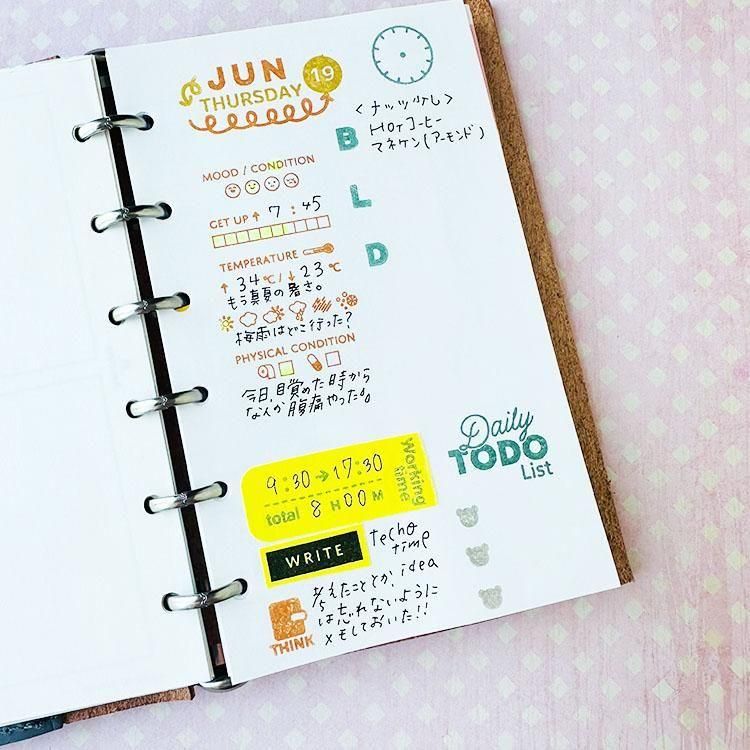 JUN
THURSDAY
19
MOOD / CONDITION
GET UP ↑ 7:45
TEMPERATURE
↑ 34℃ / ↓ 23℃
もう真夏の暑さ。
梅雨はどこ行った?
PHYSICAL CONDITION
今日、目覚めた時から
なんか腹痛やった。。
B
<ナッツ少し>
HOTコーヒー
マネケン(アーモンド)
L
D
9:30→17:30
total 8 H 00 M
Working
time
WRITE
techo
time
THINK
考えたこととか、idea
は忘れないように
メモしておいた!!
Daily
TODO
List